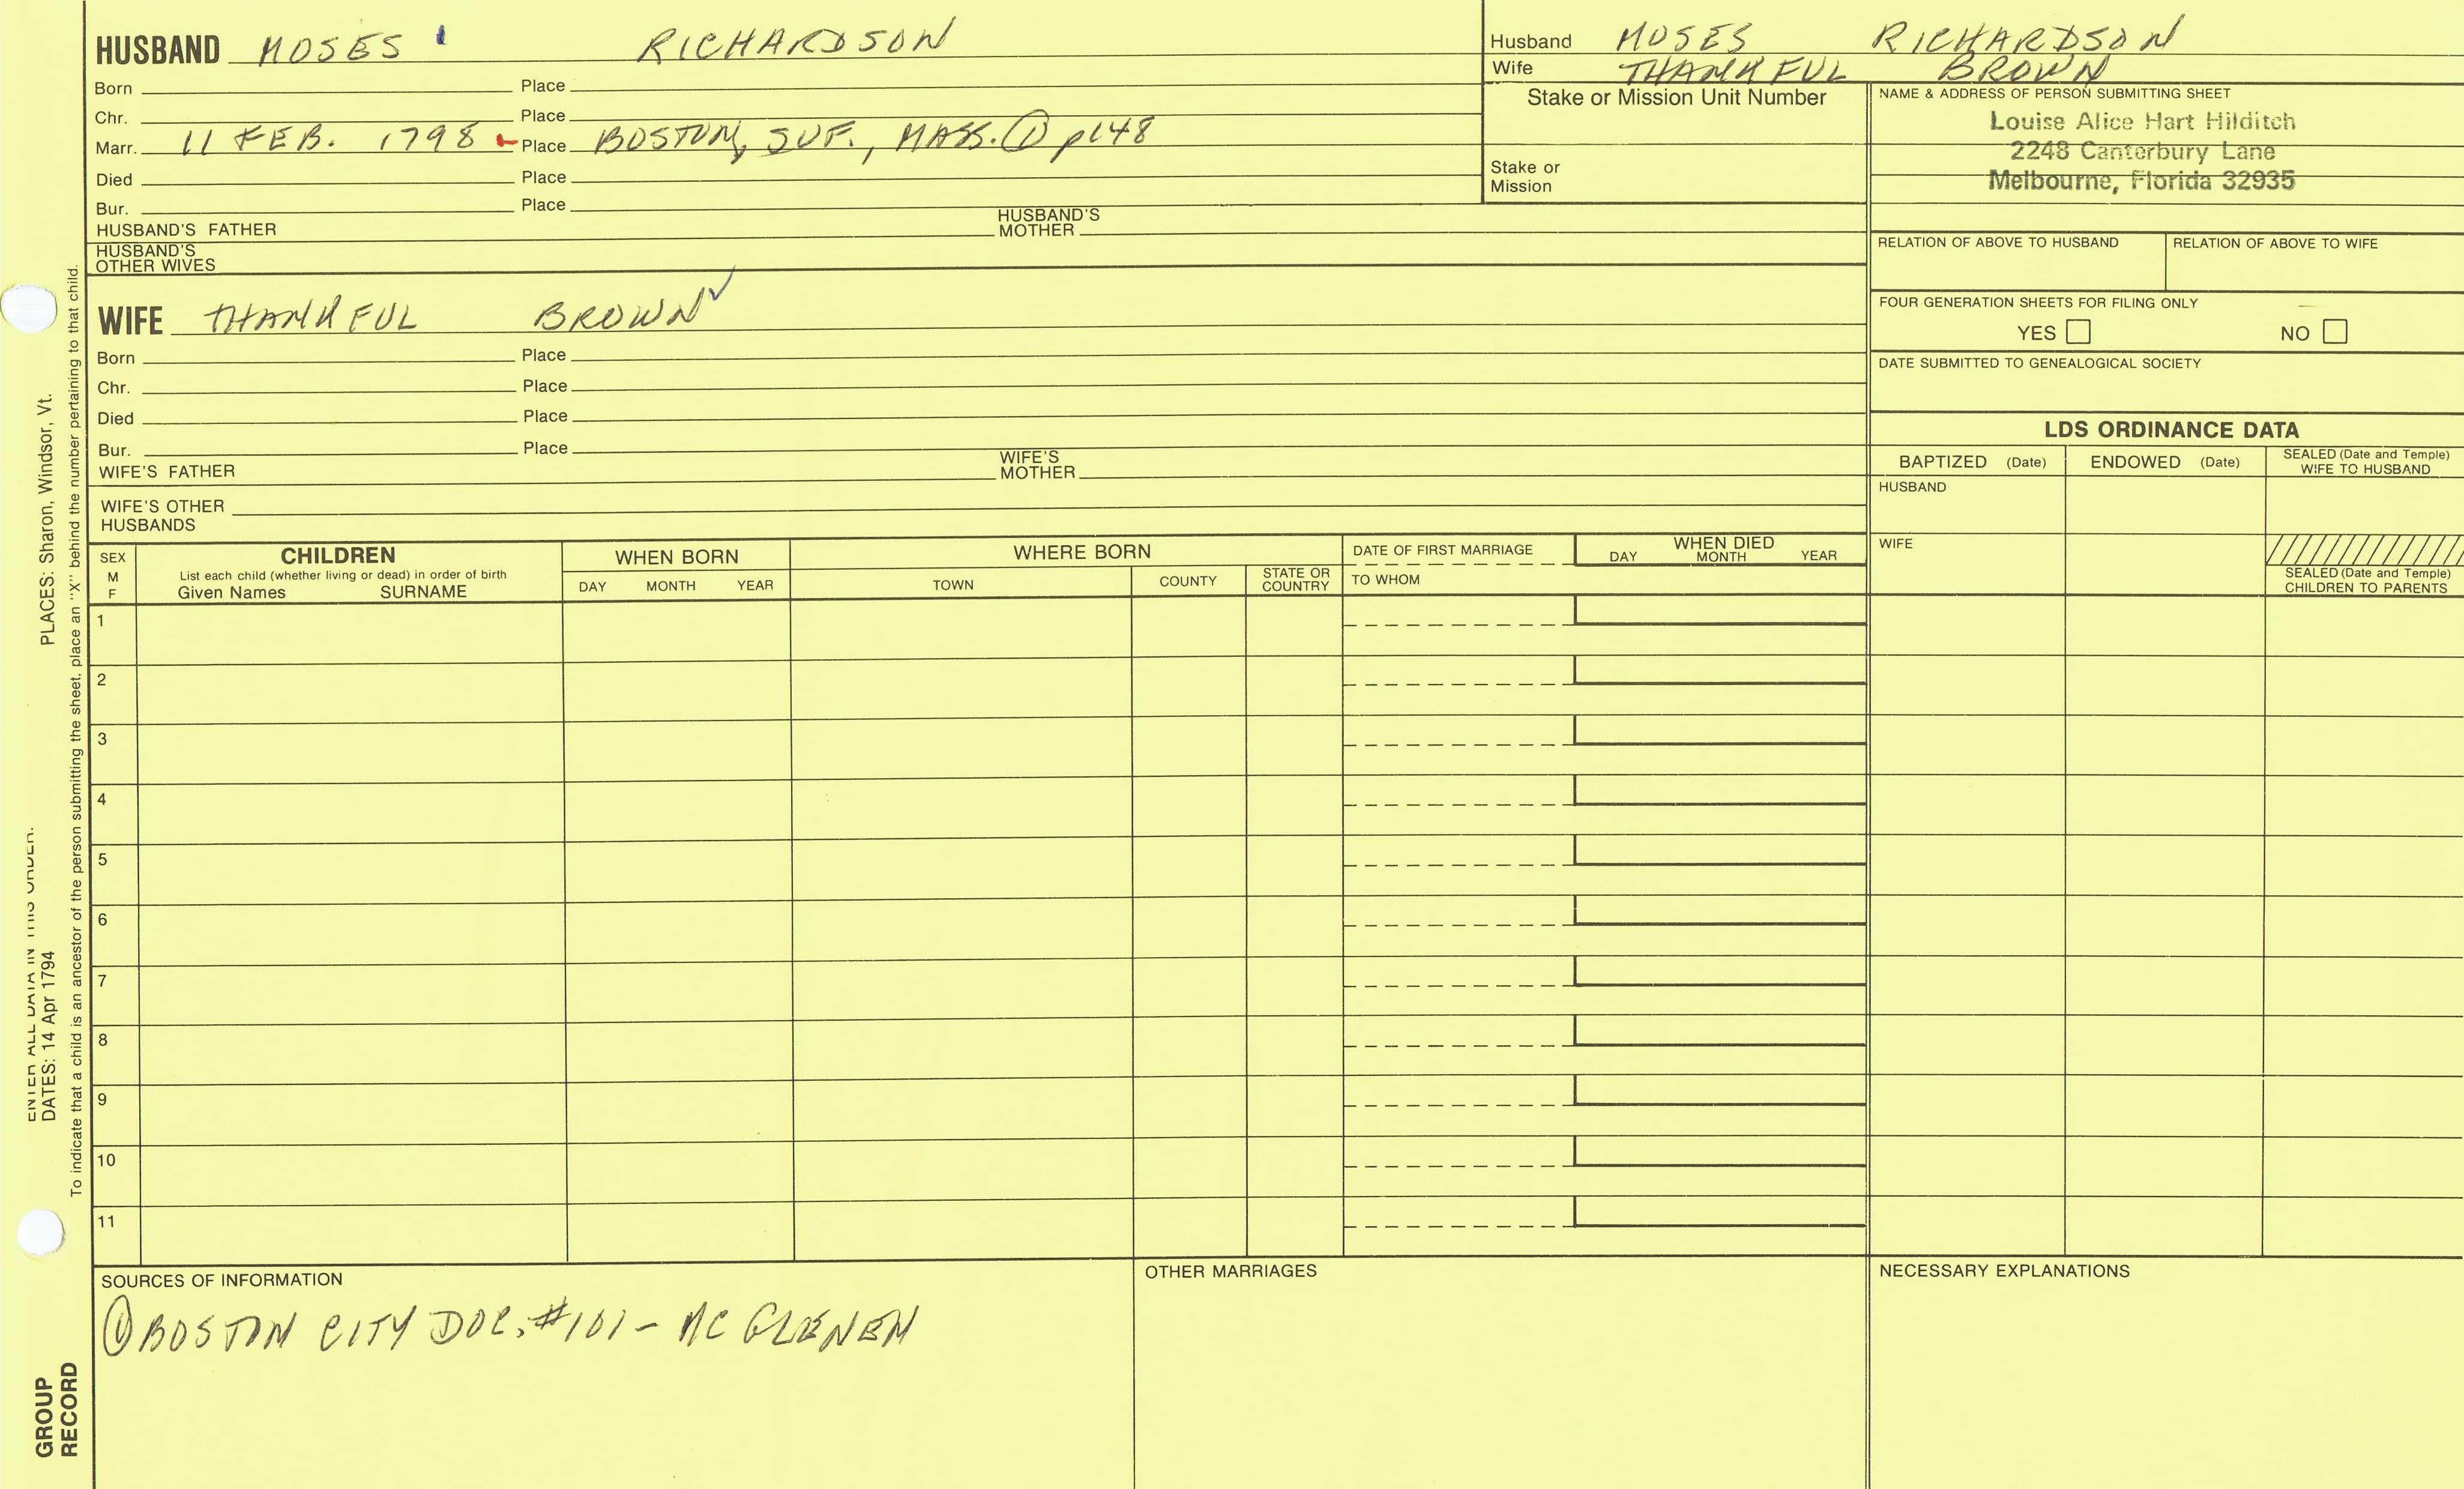 HUSBAND MOSES RICHARDSON
Born Place
Chr. Place
Marr. 11 FEB. 1798 Place BOSTON, SUF., MASS. ① p148
Died Place
Bur. Place
HUSBAND'S FATHER HUSBAND'S MOTHER
HUSBAND'S OTHER WIVES
WIFE THANKFUL BROWN ✓
Born Place
Chr. Place
Died Place
Bur. Place
WIFE'S FATHER WIFE'S MOTHER
WIFE'S OTHER HUSBANDS
Husband MOSES RICHARDSON
Wife THANKFUL BROWN
Stake or Mission Unit Number
Stake or
Mission
NAME & ADDRESS OF PERSON SUBMITTING SHEET
Louise Alice Hart Hilditch
2248 Canterbury Lane
Melbourne, Florida 32935
RELATION OF ABOVE TO HUSBAND RELATION OF ABOVE TO WIFE
FOUR GENERATION SHEETS FOR FILING ONLY
YES NO
DATE SUBMITTED TO GENEALOGICAL SOCIETY
LDS ORDINANCE DATA
BAPTIZED (Date) ENDOWED (Date) SEALED (Date and Temple) WIFE TO HUSBAND
HUSBAND
WIFE
SEALED (Date and Temple)
CHILDREN TO PARENTS
SEX
M
F
CHILDREN
List each child (whether living or dead) in order of birth
Given Names SURNAME
WHEN BORN
DAY MONTH YEAR
WHERE BORN
TOWN COUNTY STATE OR COUNTRY
DATE OF FIRST MARRIAGE
TO WHOM
WHEN DIED
DAY MONTH YEAR
1
2
3
4
5
6
7
8
9
10
11
SOURCES OF INFORMATION
① BOSTON CITY DOC. #101 - MC GLENEN
OTHER MARRIAGES
NECESSARY EXPLANATIONS
ENTER ALL DATA IN THIS ORDER:
DATES: 14 Apr 1794 PLACES: Sharon, Windsor, Vt.
To indicate that a child is an ancestor of the person submitting the sheet, place an "X" behind the number pertaining to that child.
GROUP
RECORD